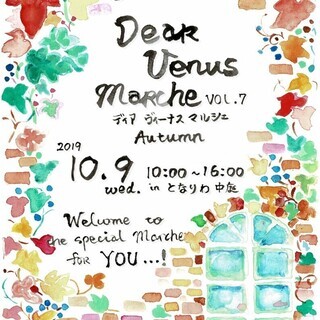 Dear
Venus
Marche VOL.7
ディア ヴィーナス マルシェ
Autumn
2019
10.9 10:00~16:00
wed. in となりわ 中庭
Welcome to
the special Marche
for YOU...!